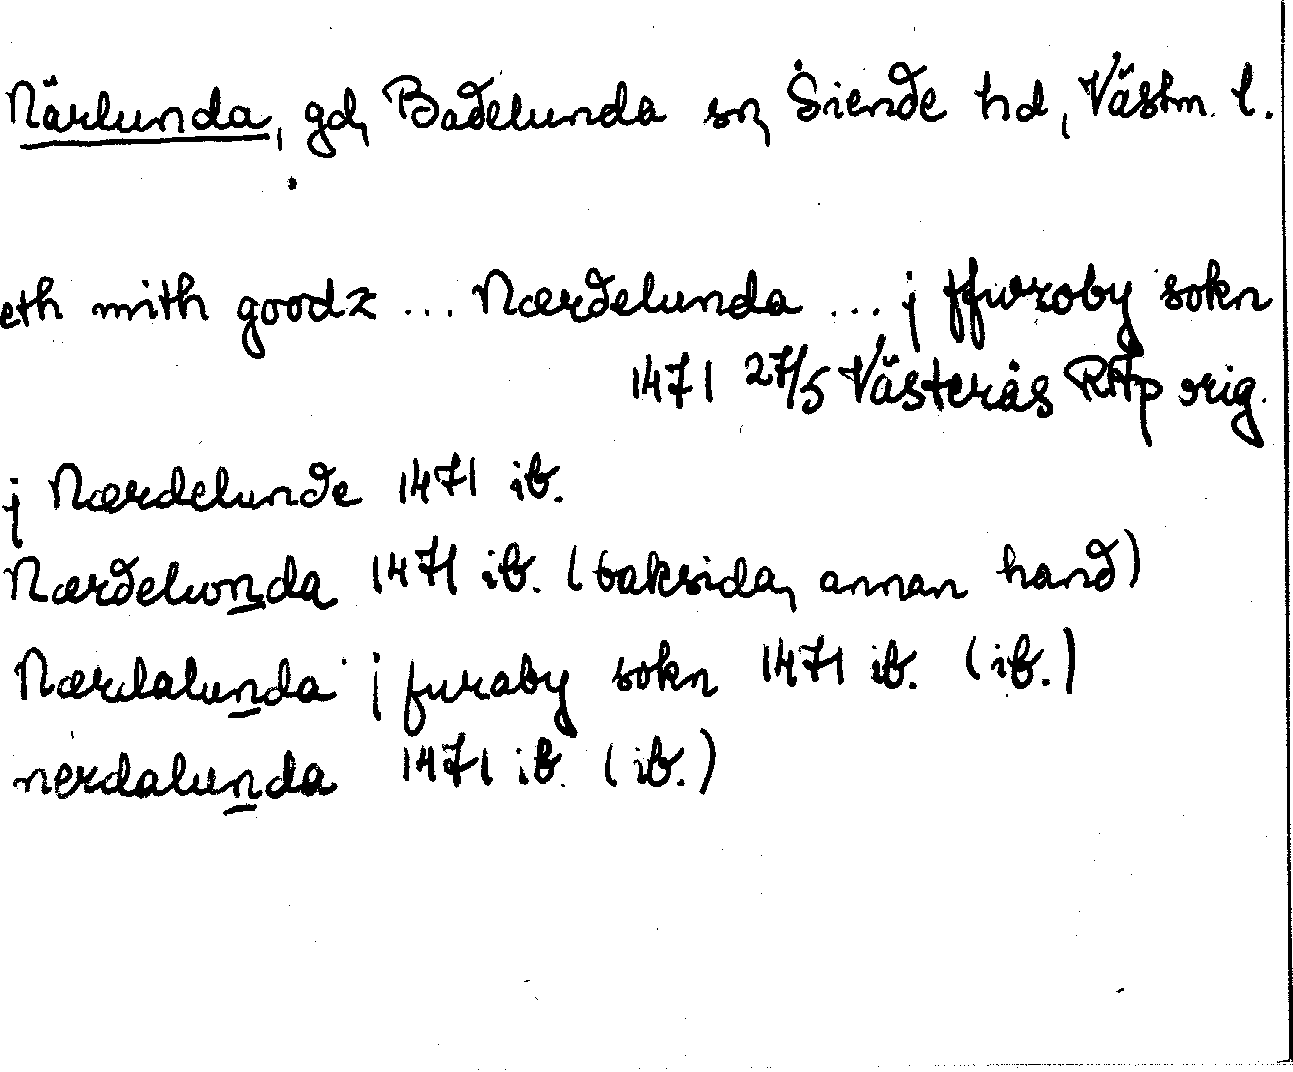 Närlunda, gd, Badelunda sn, Siende hd, Västm. l.
eth mith goodz ... Nærdelunda ... j ffuroby sokn
1471 27/5 Västerås RAp orig.
j Nærdelunde 1471 ib.
Nærdelwnda 1471 ib. (baksida, annan hand)
Nærdalunda j furaby sokn 1471 ib. (ib.)
nerdalunda 1471 ib. (ib.)